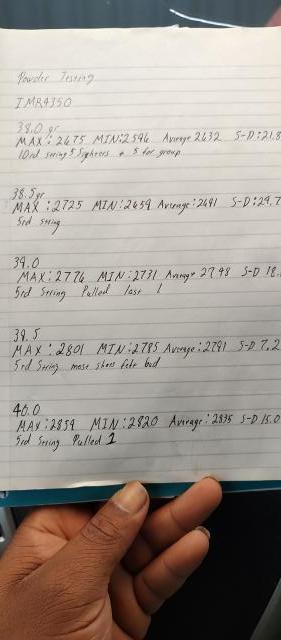 Powder Testing
IMR4350
38.0 gr
MAX: 2675 MIN: 2596 Average 2632 S-D: 21.8
10rd string 5 Sighters + 5 for group
38.5gr
MAX: 2725 MIN: 2659 Average: 2691 S-D: 29.7
5rd string
39.0
MAX: 2776 MIN: 2731 Average 2748 S-D 18.
5rd String Pulled last 1
39.5
MAX: 2801 MIN: 2785 Average: 2791 S-D 7.2
5rd String most shots felt bad
40.0
MAX: 2859 MIN: 2820 Average: 2835 S-D 15.0
5rd String Pulled 1